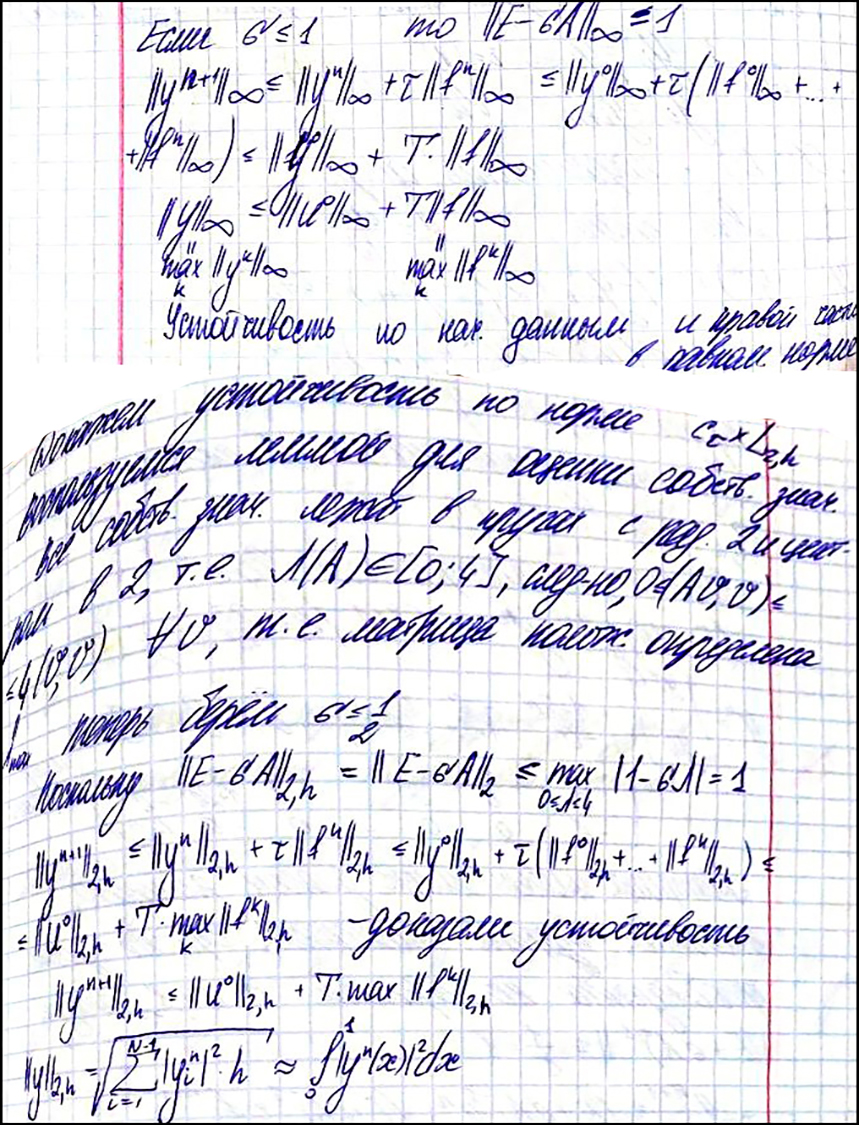 Если σ ≤ 1 то ||E-σA||∞ = 1
||yⁿ⁺¹||∞ ≤ ||yⁿ||∞ + τ||fⁿ||∞ ≤ ||y⁰||∞ + τ(||f⁰||∞ + ... +
+ ||fⁿ||∞) ≤ ||y⁰||∞ + T·||f||∞
||y||∞ ≤ ||u⁰||∞ + T||f||∞
" "
max_k ||yᵏ||∞ max_k ||fᵏ||∞
Устойчивость по нач. данным и правой части
в равном. норме
Докажем устойчивость по норме C_τ × L_{2,h}
воспользуемся леммой для оценки собств. знач.
Все собств. знач. лежат в кругах с рад. 2 и цент-
ром в 2, т.е. Λ(A) ∈ [0; 4], след-но, 0 ≤ (Av, v) ≤
≤ 4(v, v) ∀v, т.е. матрица полож. определена
теперь берём σ ≤ 1/2
Поскольку ||E-σA||_{2,h} = ||E-σA||₂ ≤ max_{0≤Λ≤4} |1-σΛ| = 1
||yⁿ⁺¹||_{2,h} ≤ ||yⁿ||_{2,h} + τ||fⁿ||_{2,h} ≤ ||y⁰||_{2,h} + τ(||f⁰||_{2,h} + ... + ||fⁿ||_{2,h}) ≤
≤ ||u⁰||_{2,h} + T·max_k ||fᵏ||_{2,h} - доказали устойчивость
||yⁿ⁺¹||_{2,h} ≤ ||u⁰||_{2,h} + T·max ||fᵏ||_{2,h}
||y||_{2,h} = √(∑_{i=1}^{N-1} |y_iⁿ|²·h) ≈ ∫₀¹ |yⁿ(x)|²dx